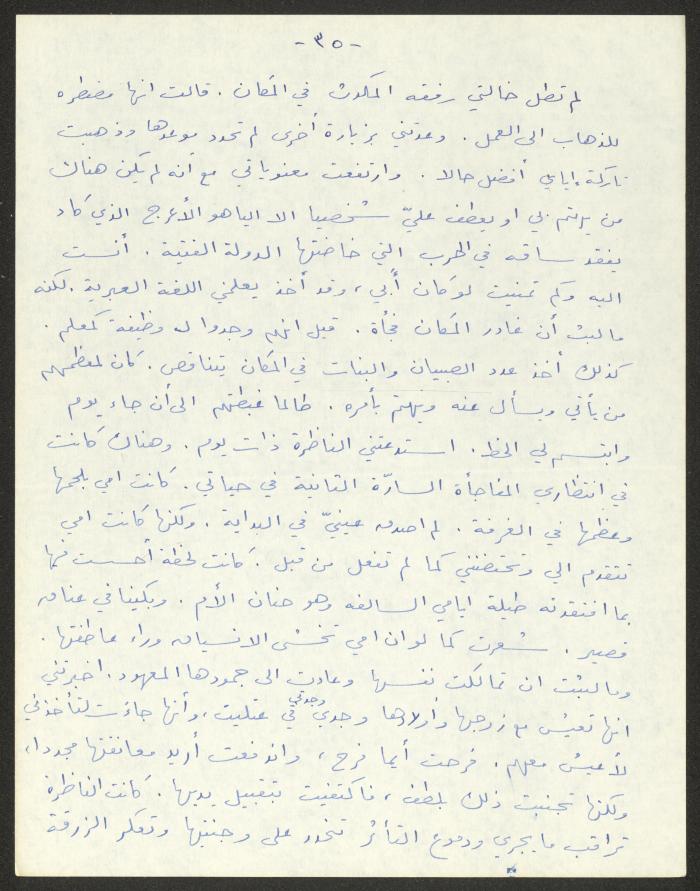 - ٣٥ -
لم تطل خالتي رفقه المكوث في المكان . قالت انها مضطره
للذهاب الى العمل . وعدتني بزيارة أخرى لم تحدد موعدها وذهبت
تاركة إياي أفضل حالا . وارتفعت معنوياتي مع أنه لم يكن هناك
من يهتم بي او يعطف عليّ شخصيا الا الياهو الأعرج الذي كاد
يفقد ساقه في الحرب التي خاضتها الدولة الفتية . أنست
اليه وكم تمنيت لو كان أبي ، وقد أخذ يعلمني اللغة العبرية . لكنه
ما لبث أن غادر المكان فجأة . قيل انهم وجدوا له وظيفة كمعلم .
كذلك أخذ عدد الصبيان والبنات في المكان يتناقص . كان لمعظمهم
من يأتي ويسأل عنه ويهتم بأمره . طالما غبطتهم الى أن جاء يوم
وابتسم لي الحظ . استدعتني الناظرة ذات يوم . وهناك كانت
في انتظاري المفاجأة السارّة الثانية في حياتي . كانت امي بلحمها
وعظمها في الغرفة . لم اصدق عينيّ في البداية . ولكنها كانت امي
تتقدم الي وتحتضنني كما لم تفعل من قبل . كانت لحظة أحسست فيها
بما افتقدته طيلة ايامي السالفه وهو حنان الأم . وبكينا في عناق
قصير . شعرت كما لو ان امي تخشى الانسياق وراء عاطفتها .
وما لبثت ان تمالكت نفسها وعادت الى جمودها المعهود . اخبرتني
انها تعيش مع زوجها وأولادها وجدي وجدتي في عتليت ، وأنها جاءت لتأخذني
لأعيش معهم . فرحت أيما فرح ، واندفعت أريد معانقتها مجددا ،
ولكنها تجنبت ذلك بلطف ، فاكتفيت بتقبيل يديها . كانت الناظرة
تراقب ما يجري ودموع التأثر تنحدر على وجنتيها وتعكر الزرقة